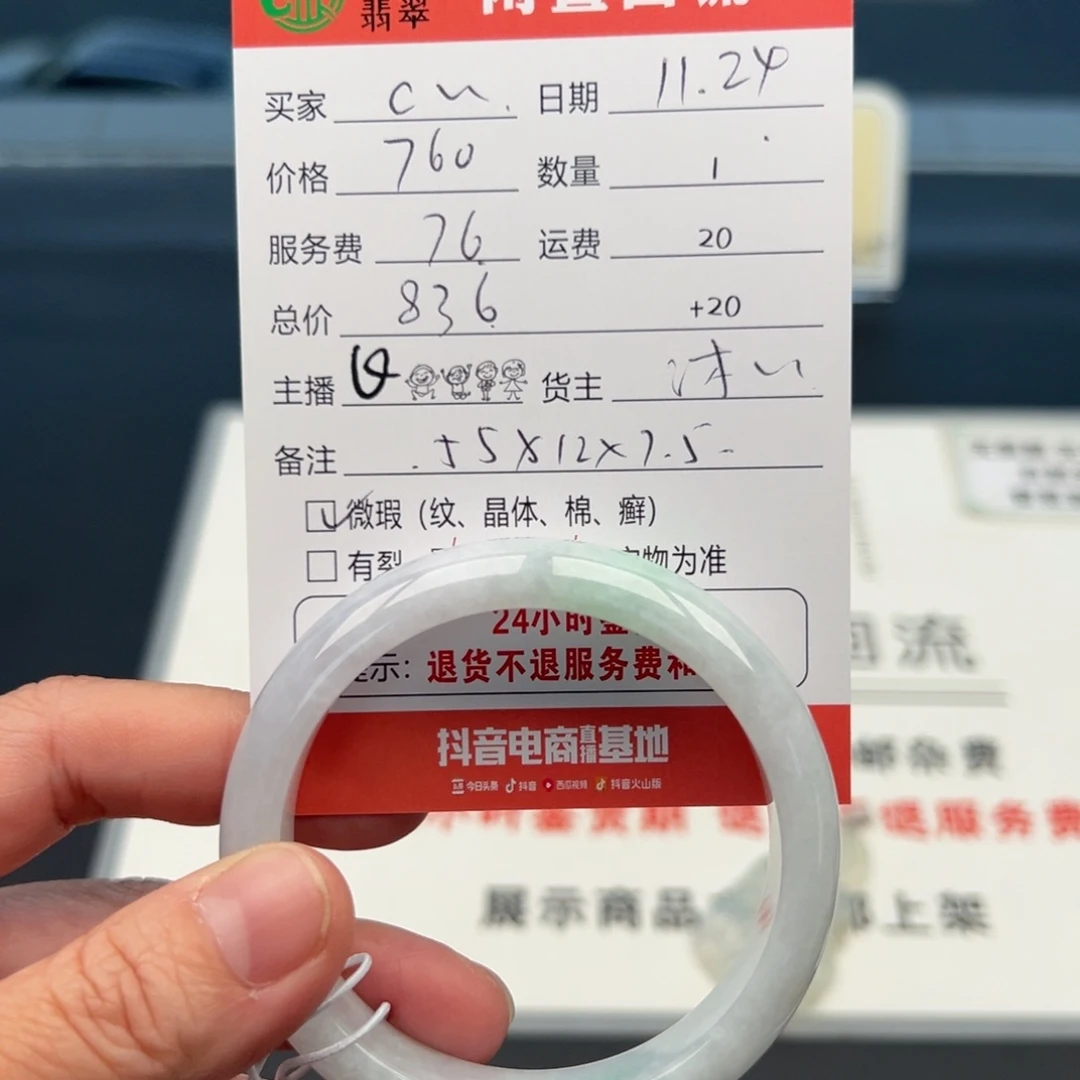 翡翠
买家 cu. 日期 11.24
价格 760 数量 1
服务费 76 运费 20
总价 836 +20
主播 货主
备注 .55X12X7.5-
微瑕（纹、晶体、棉、癣）
有裂 物为准
24小时鉴
示：退货不退服务费和
抖音电商直播基地
今日头条 抖音 西瓜视频 抖音火山版
流
邮杂费
退服务费
展示商品 上架